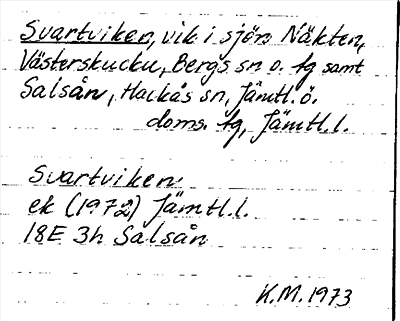 Svartviken, vik i sjön Näkten,
Västerskucku, Bergs sn o. tg samt
Salsån, Hackås sn, Jämtl. ö.
doms. tg, Jämtl. l.
Svartviken
ek (1972) Jämtl. l.
18E 3h Salsån
K.M. 1973